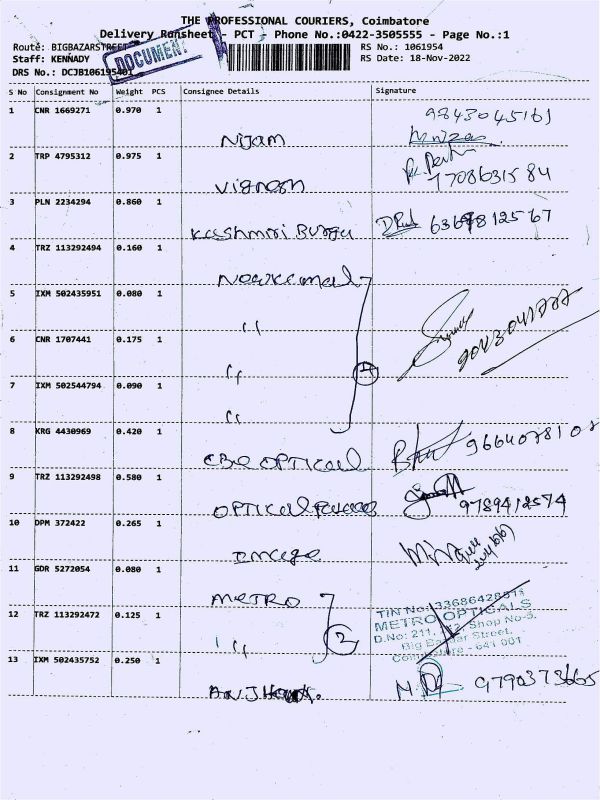 THE PROFESSIONAL COURIERS, Coimbatore
Delivery Runsheet - PCT - Phone No.:0422-3505555 - Page No.:1
Route: BIGBAZARSTREET
RS No.: 1061954
Staff: KENNADY
RS Date: 18-Nov-2022
DRS No.: DCJB106195401
DOCUMENT
S No Consignment No Weight PCS Consignee Details Signature
1 CNR 1669271 0.970 1
Nijam
9843045161
2 TRP 4795312 0.975 1
Vignesh
7708631584
3 PLN 2234294 0.860 1
Kashmiri Burga
4 TRZ 113292494 0.160 1
5 IXM 502435951 0.080 1
"
6 CNR 1707441 0.175 1
"
4
7 IXM 502544794 0.090 1
"
8 KRG 4430969 0.420 1
OPTICAL
9 TRZ 113292498 0.580 1
OPTICAL
9789412574
10 DPM 372422 0.265 1
Image
11 GDR 5272054 0.080 1
METRO
12 TRZ 113292472 0.125 1
"
2
METRO OPTICALS
D.No: 211, Shop No-5,
Big Bazaar Street,
Coimbatore - 641 001
13 IXM 502435752 0.250 1
9790373665